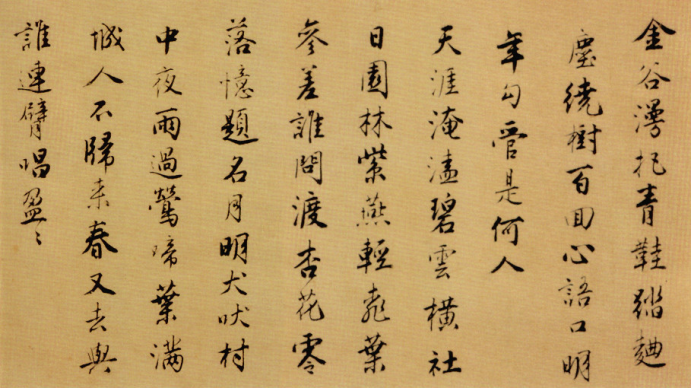 金谷漫扡青鞋踏麯
塵繞樹百回心語口明
年勾管是何人
天涯淹溘碧雲橫社
日園林紫燕輕飛葉
參差誰問渡杏花零
落憶題名月明犬吠村
中夜雨過鶯啼葉滿
城人不歸来春又去與
誰連臂唱盈〻